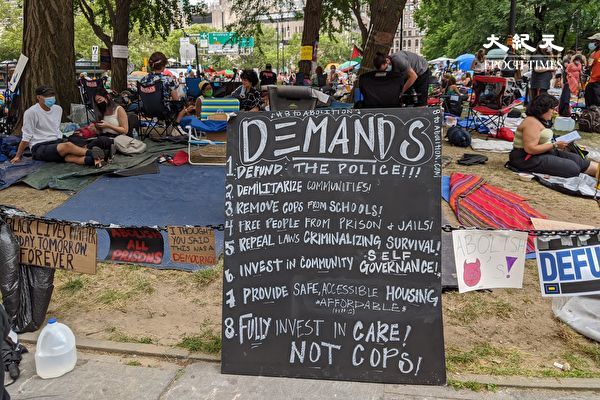 大紀元
EPOCH TIMES
#8TOABOLITION
DEMANDS
1. DEFUND THE POLICE!!!
2 DEMILITARIZE COMMUNITIES!
3 REMOVE COPS FROM SCHOOLS!
4 FREE PEOPLE FROM PRISON & JAILS!
5 REPEAL LAWS CRIMINALIZING SURVIVAL!
6 INVEST IN COMMUNITY SELF
GOVERNANCE!
7 PROVIDE SAFE, ACCESSIBLE HOUSING,
*AFFORDABLE*
8. FULLY INVEST IN CARE!
NOT COPS!
8TOABOLITION.COM
BLACK LIVES MATTER
TODAY TOMORROW
FOREVER
ABOLISH ALL
PRISONS
I THOUGHT
YOU SAID
THIS WAS A
DEMOCRACY
ABOLISH
DEFU